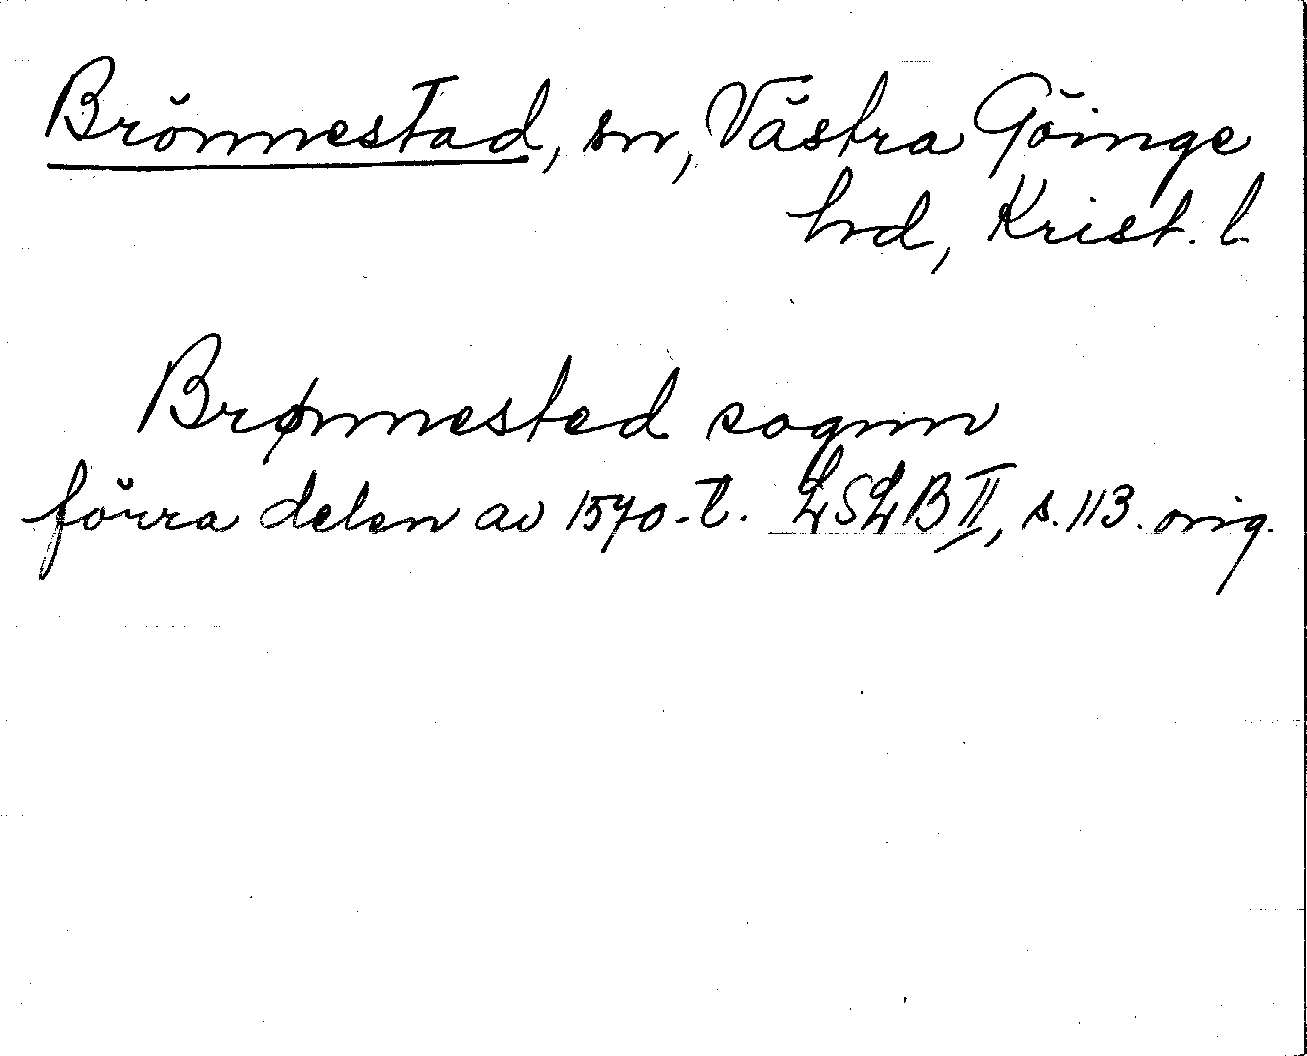 Brönnestad, sn, Västra Göinge
hrd, Krist. l.
Brønnested sognn
förra delen av 1570-t. LSLB II, s. 113. orig.